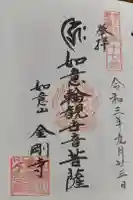 奉拝
令和三年九月廿三日
如意輪観世音菩薩
如意山 金剛寺